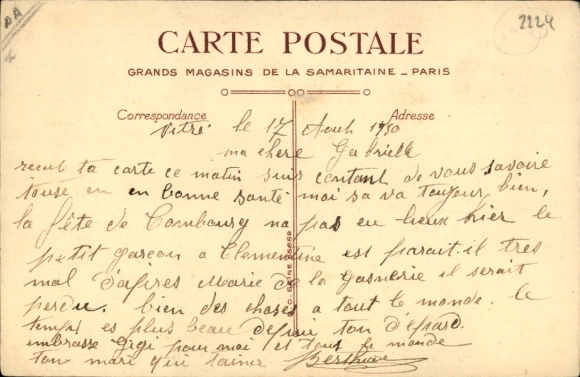 2224
CARTE POSTALE
GRANDS MAGASINS DE LA SAMARITAINE _ PARIS
Correspondance
Adresse
Vitré le 17 Aout 1930
ma chere Gabrielle
recut ta carte ce matin suis contant de vous savoire
touse en en bonne santé moi sa va toujour bien,
la fête de Combourg na pas eu lieux hier le
petit garcon a Clementine est parait-il tres
mal d'apres Marie de la Gasnerie il serait
perdu. bien des choses a tout le monde. le
temps es plus beau depui ton départ.
embrasse Gigi pour moi et tout le monde
ton mari qui t'aime
R.C. SEINE